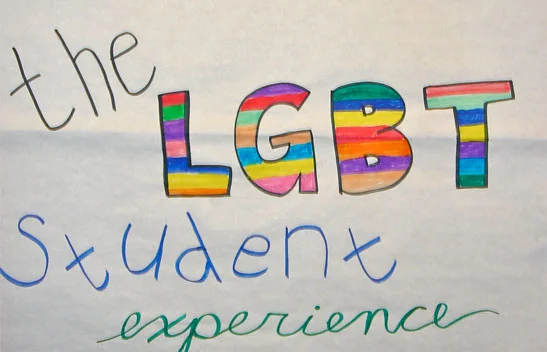 the
LGBT
Student
experience